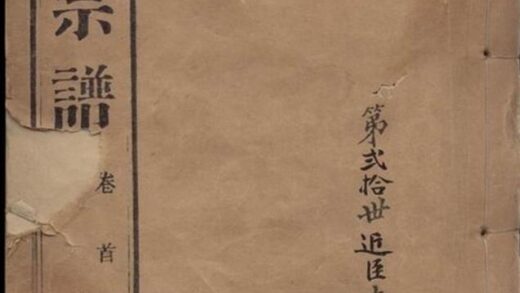 第弍拾世近臣
宗譜
卷首